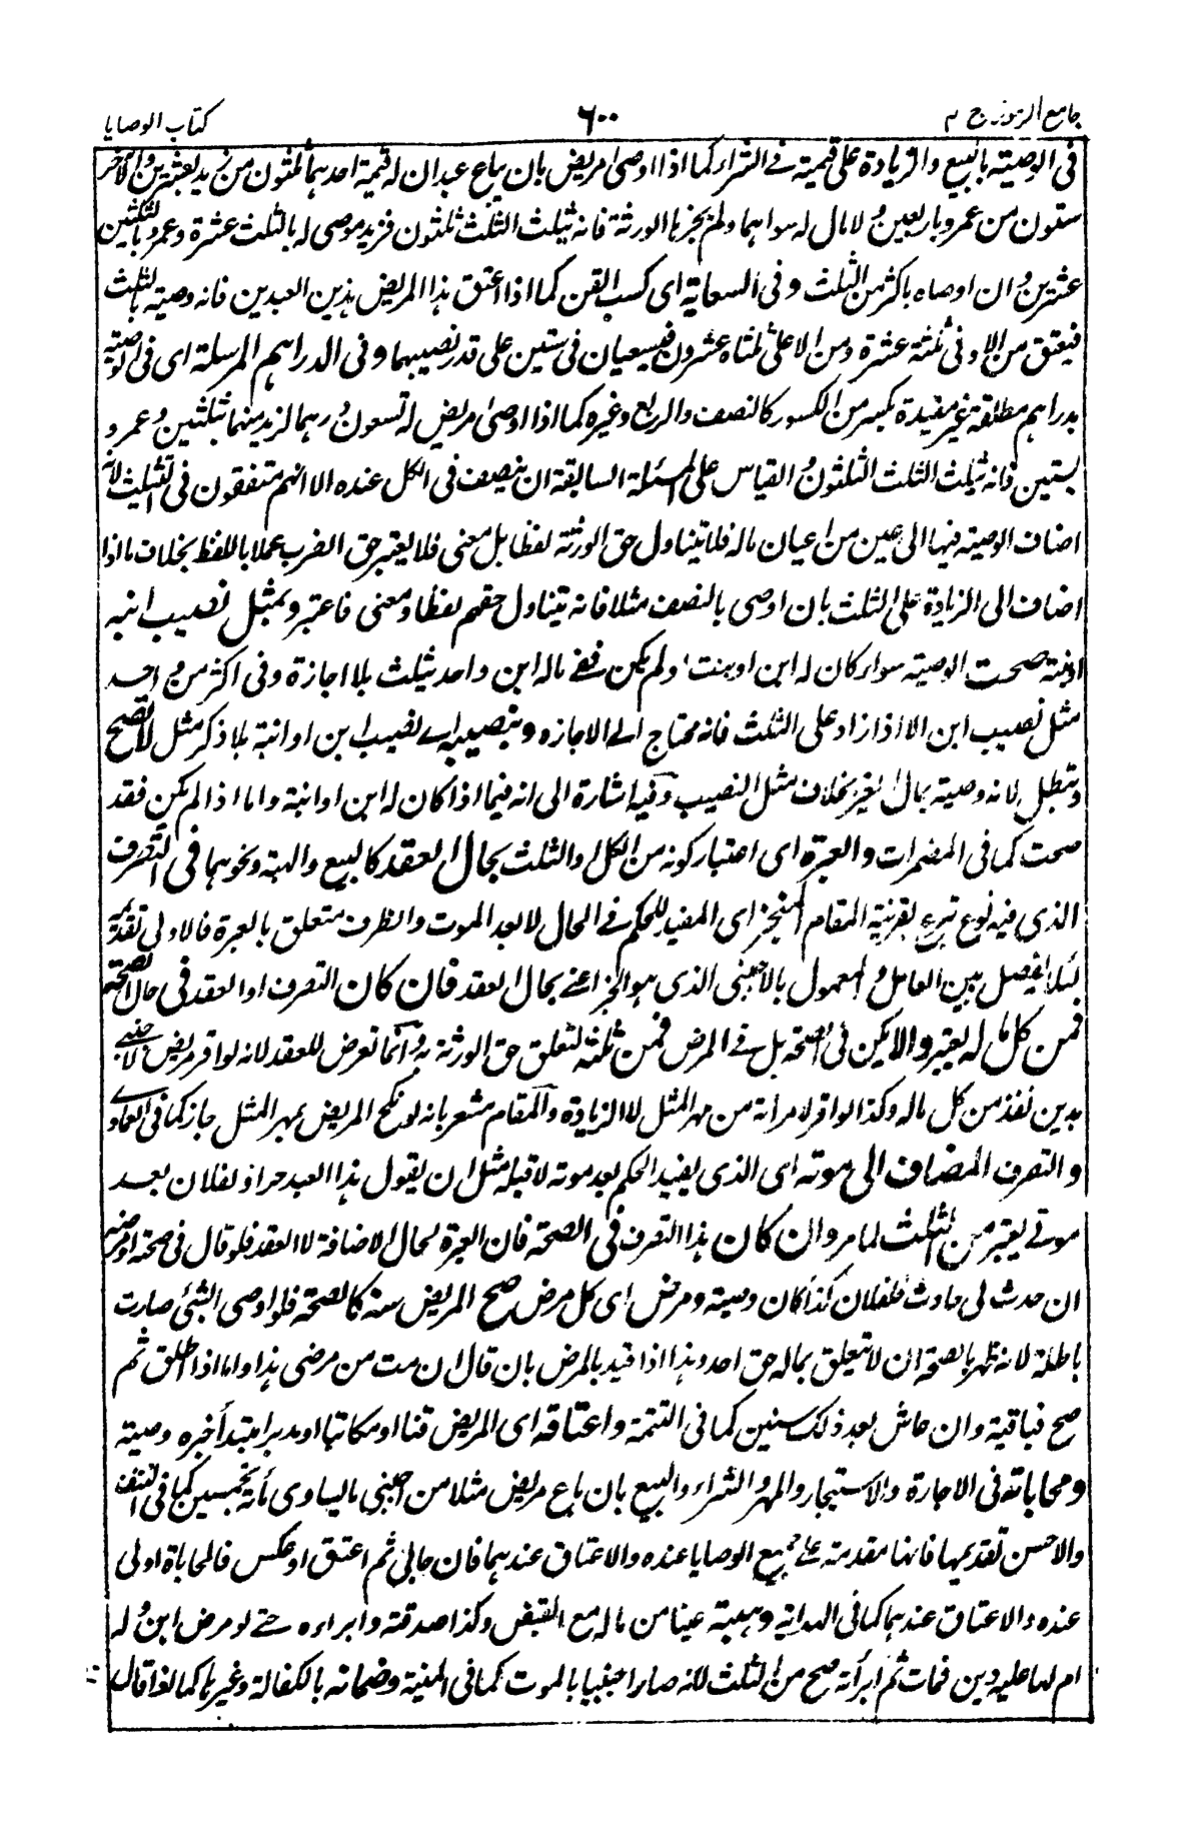 جامع الرموز ج ٢
٦٠٠
كتاب الوصايا
فى الوصية بالبيع والزيادة على قيمته فى الشراء كما اذا اوصى مريض بان يباع عبدان له قيمة احدهما ثلثون من زيد بعشرين والآخر
ستون من عمرو باربعين ولا مال له سواهما ولم يجزها الورثة فانه يثلث الثلث ثلثون فزيد موصى له بالثلث عشرة وعمرو بالثلثين
عشرين وان اوصاه باكثر من الثلث وفى السعاية اى كسب القن كما اذا اعتق هذا المريض هذين العبدين فانه وصية بالثلث
فيعتق من الادنى ثلثه عشرة ومن الاعلى ثلثاه عشرون فيسعيان فى ستين على قدر نصيبهما وفى الدراهم المرسلة اى فى الوصية
بدراهم مطلقة غير مقيدة بكسر من الكسور كالنصف والربع وغيره كما اذا اوصى مريض له تسعون درهما لزيد منها بثلثين ولعمرو
بستين فانه يثلث الثلث الثلثون والقياس على المسئلة السابقة ان ينصف فى الكل عنده الا انهم متفقون فى التثليث لانه
اضاف الوصية فيها الى عين من اعيان ماله فلا يتناول حق الورثة لفظا بل معنى فلا يعتبر حق الضرب عملا باللفظ بخلاف ما اذا
اضاف الى الزيادة على الثلث بان اوصى بالنصف مثلا فانه تيناول حقهم لفظا ومعنى فاعتبر وبمثل نصيب ابنه
او بنته صحت الوصية سواء كان له ابن او بنت او لم يكن ففى ماله ابن واحد ثيلث بلا اجازة وفى اكثر من واحد
مثل نصيب ابن الا اذا زاد على الثلث فانه محتاج الى الاجازه وبنصيبه اى نصيب ابن او ابنة بلا ذكر مثل لا تصح
وتبطل لانه وصية بمال الغير بخلاف مثل النصيب وفيه اشارة الى انه فيما اذا كان له ابن او ابنة واما اذا لم يكن فقد
صحت كما فى المضمرات والعبرة اى اعتبار كونه من الكل او الثلث بحال العقد كالبيع والهبة ونحوهما فى التصرف
الذى فيه نوع تبرع بقرينة المقام المنجز اى المفيد للحكم فى الحال لا بعد الموت والظرف متعلق بالعبرة فالاولى تقديمه
لئلا يفصل بين العامل والمعمول بالاجنبى الذى هو الجزاء اعنى بحال العقد فان كان التصرف او العقد فى حال الصحة
فمن كل ماله يعتبر والا يكن فى الصحة بل فى المرض فمن ثلثه لتعلق حق الورثة به وانما تعرض للعقد لانه لو اقر مريض لاجنبى
بدين نفذ من كل ماله وكذا لو اقر لامرأته من مهر المثل لا الزيادة والمقام مشعر بانه لو نكح المريض بمهر المثل جاز كما فى العمادى
والتصرف المضاف الى موته اى الذى يفيد الحكم بعد موته لا قبله مثل ان يقول هذا العبد حر او لفلان بعد
موتى يعتبر من الثلث لما مر وان كان هذا التصرف فى الصحة فان العبرة لحال الاضافة لا العقد فلو قال فى صحته او مرضه
ان حدث لى حادث فلفلان كذا كان وصية ومرض اى كل مرض صح المريض منه كالصحة فلو اوصى الشئ صارت
باطلة لانه ظهر بالصحة ان لا تعلق بماله حق احد وهذا اذا قيد بالمرض بان قال ان مت من مرضى هذا واما اذا اطلق ثم
صح فباقية وان عاش بعد ذلك سنين كما فى التتمة واعتاقه اى المريض قنا او مكاتبا او مدبرا مبتدأ خبره وصية
ومحاباته فى الاجارة والاستيجار والمهر والشراء والبيع بان باع مريض مثلا من اجنبى ما يساوى مأة بخمسين كما فى النتف
والاحسن تقديمها فانها مقدمة على جميع الوصايا عنده والاعتاق عندهما فان حابى ثم اعتق او عكس فالمحاباة اولى
عنده والاعتاق عندهما كما فى الهداية وهبته عينا من ماله مع القبض وكذا صدقته وابراءه حتى لو مرض ابن وله
ام لها عليه دين فمات ثم ابرأته صح من الثلث لانه صار اجنبيا بالموت كما فى المنية وضمانه بالكفالة وغيرها كما لو قال